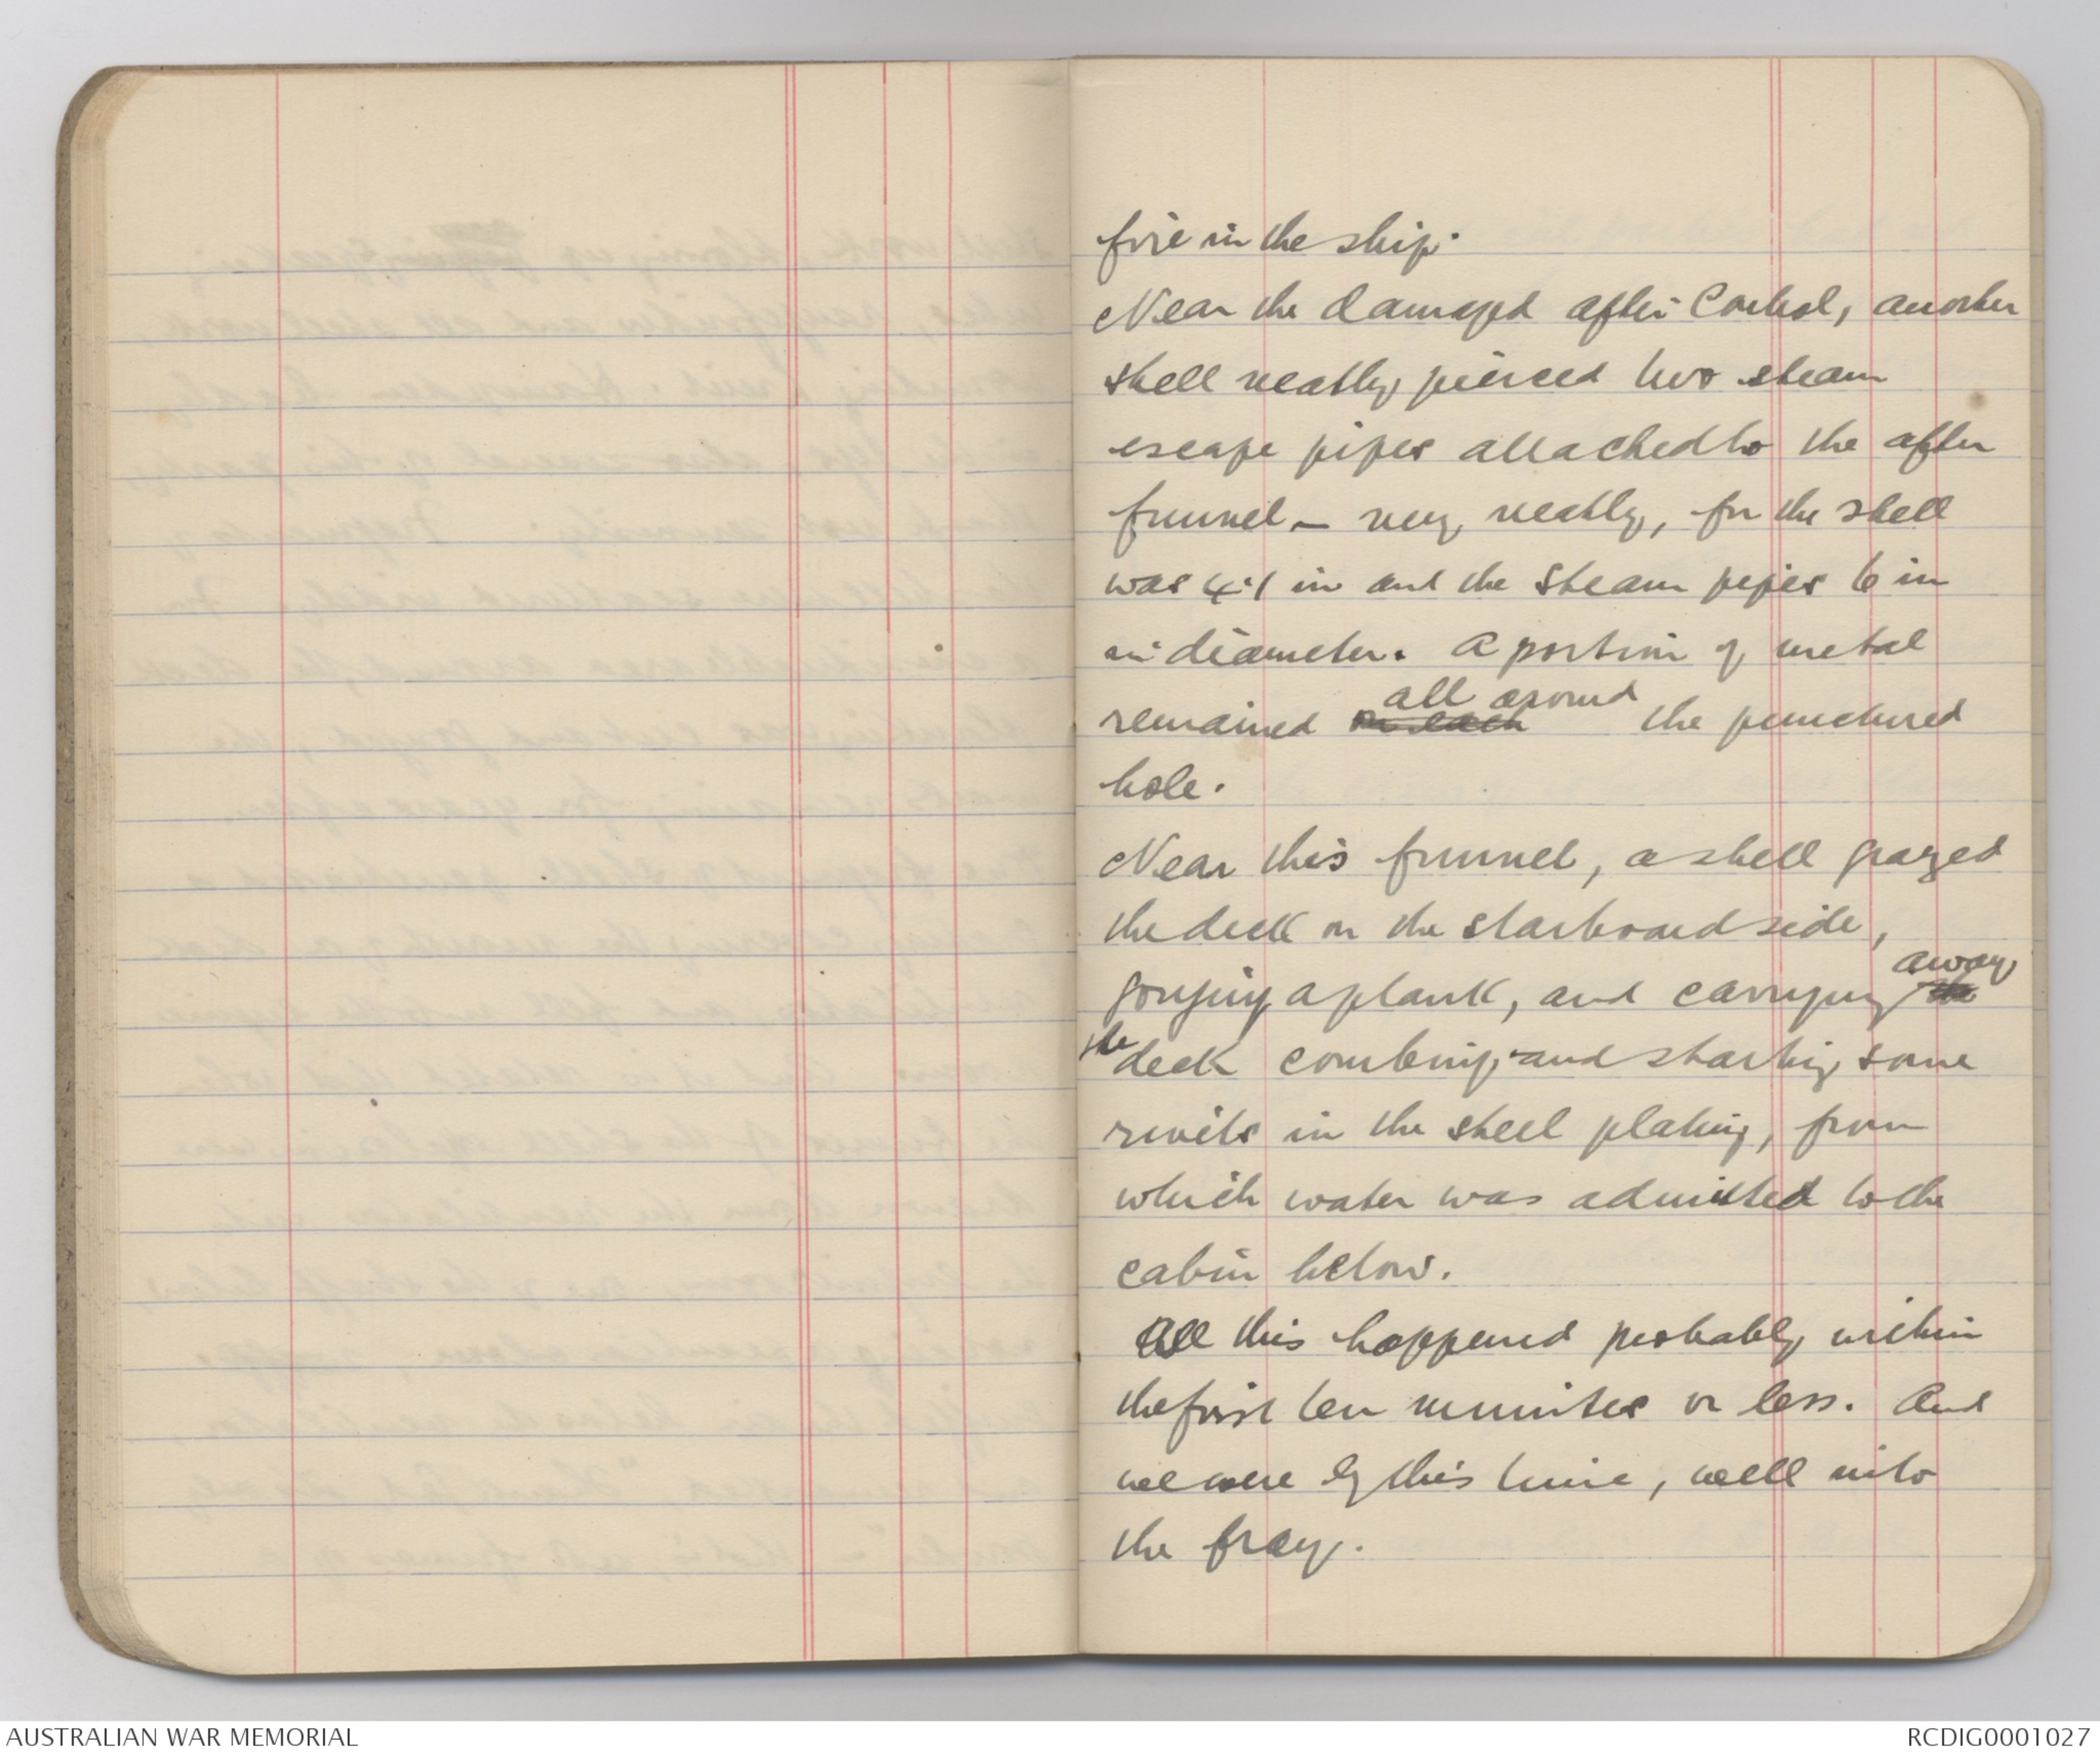 fire in the ship.
Near the damaged after Control, another
shell neatly pierced two steam
escape pipes attached to the after
funnel – very neatly, for the shell
was 4.1 in and the steam pipes 6 in
in diameter. A portion of metal
all around
remained on each the punctured
hole.
Near this funnel, a shell grazed
the deck on the starboard side,
away
gouging a plank, and carrying the
the deck combing and starting some
rivets in the steel plating, from
which water was admitted to the
cabin below.
All this happened probably within
the first ten minutes or less. And
we were by this time, well into
the fray.
AUSTRALIAN WAR MEMORIAL
RCDIG0001027